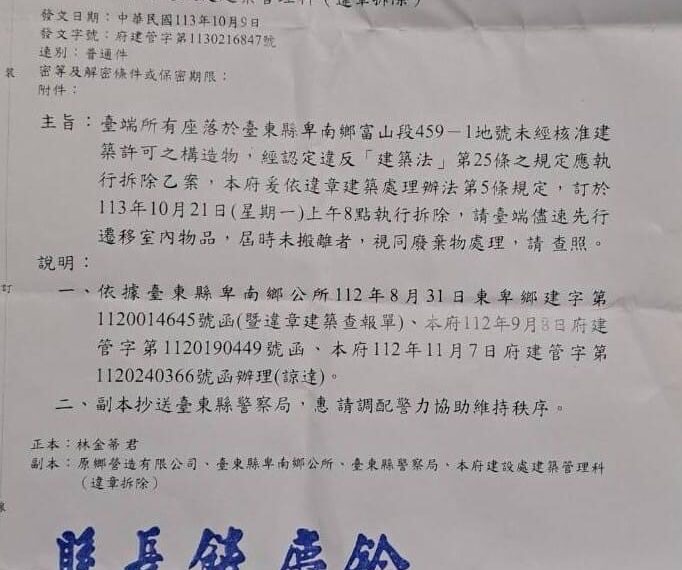 建築管理科（違章拆除）
發文日期：中華民國113年10月9日
發文字號：府建管字第1130216847號
速別：普通件
密等及解密條件或保密期限：
附件：
裝
主旨：臺端所有座落於臺東縣卑南鄉富山段459－1地號未經核准建
築許可之構造物，經認定違反「建築法」第25條之規定應執
行拆除乙案，本府爰依違章建築處理辦法第5條規定，訂於
113年10月21日(星期一)上午8點執行拆除，請臺端儘速先行
遷移室內物品，屆時未搬離者，視同廢棄物處理，請 查照。
說明：
一、依據臺東縣卑南鄉公所112年8月31日東卑鄉建字第
訂
1120014645號函(暨違章建築查報單)、本府112年9月8日府建
管字第1120190449號函、本府112年11月7日府建管字第
1120240366號函辦理(諒達)。
二、副本抄送臺東縣警察局，惠 請調配警力協助維持秩序。
正本：林金蒂 君
副本：原鄉營造有限公司、臺東縣卑南鄉公所、臺東縣警察局、本府建設處建築管理科
（違章拆除）
線
縣長饒慶鈴